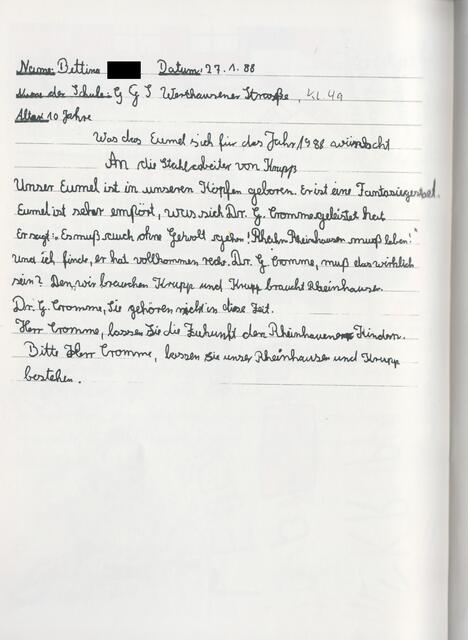 Name: Bettina Datum: 27.1.88
Name der Schule: G G S Werthausener Strasße, Kl. 4a
Alter: 10 Jahre
Was das Eumel sich für das Jahr 1988 wünscht
An die Stahlarbeiter von Krupp
Unser Eumel ist in unseren Köpfen geboren. Er ist eine Fantasiegestalt.
Eumel ist seher empört, was sich Dr. G. Cromme geleistet hat
Er sagt: Es muß auch ohne Gewolt gehn! Rhehn Rheinhausen muß leben!"
und ich finde, er hat vollkommen recht. Dr. G Cromme, muß das wirklich
sein? Den, wir brauchen Krupp und Krupp braucht Rheinhausen.
Dr. G. Cromme, Sie gehören nicht in diese Zeit.
Herr Cromme, lassen Sie die Zukunft den Rheinhauener Kindern.
Bitte Herr Cromme, lassen sie unser Rheinhausen und Krupp
bestehen.